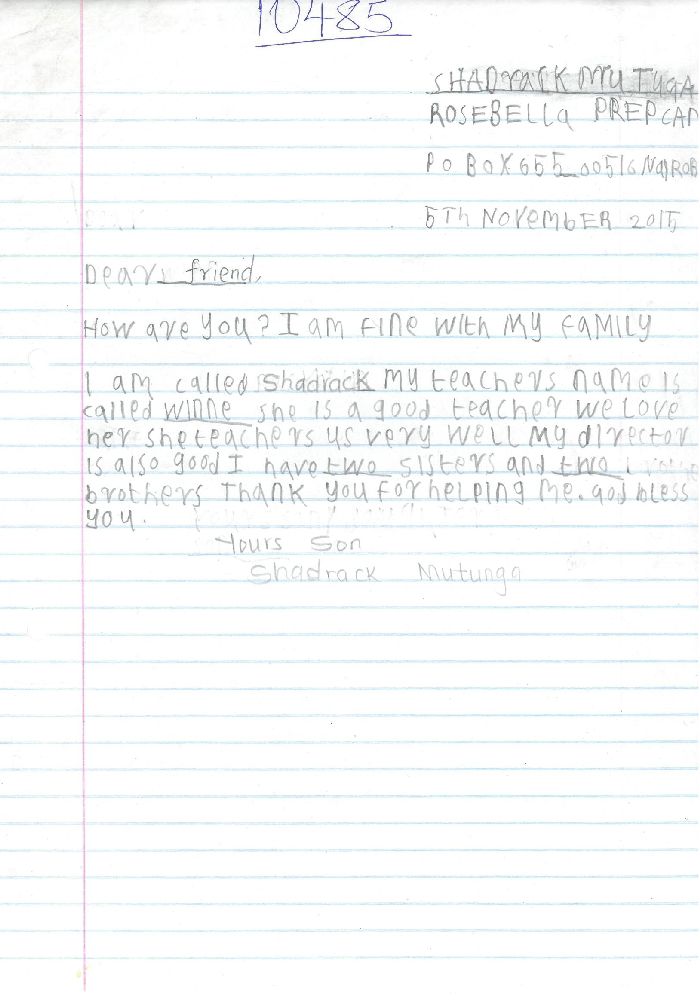 10485
SHADraCK MU TUGA
ROSEBELLa PREPCAP
PO BOX 655_00516 NaJROB
5Th NOVEMbER 2015
Dear friend,
How are you? I am fine with My FaMILY
I am called Shadrack My teachers name is
called winne she is a good teacher we Love
her she teachers us very well My director
is also good I have two sisters and two
brothers Thank you For helping Me. god bless
you.
Yours Son
Shadrack Mutunga